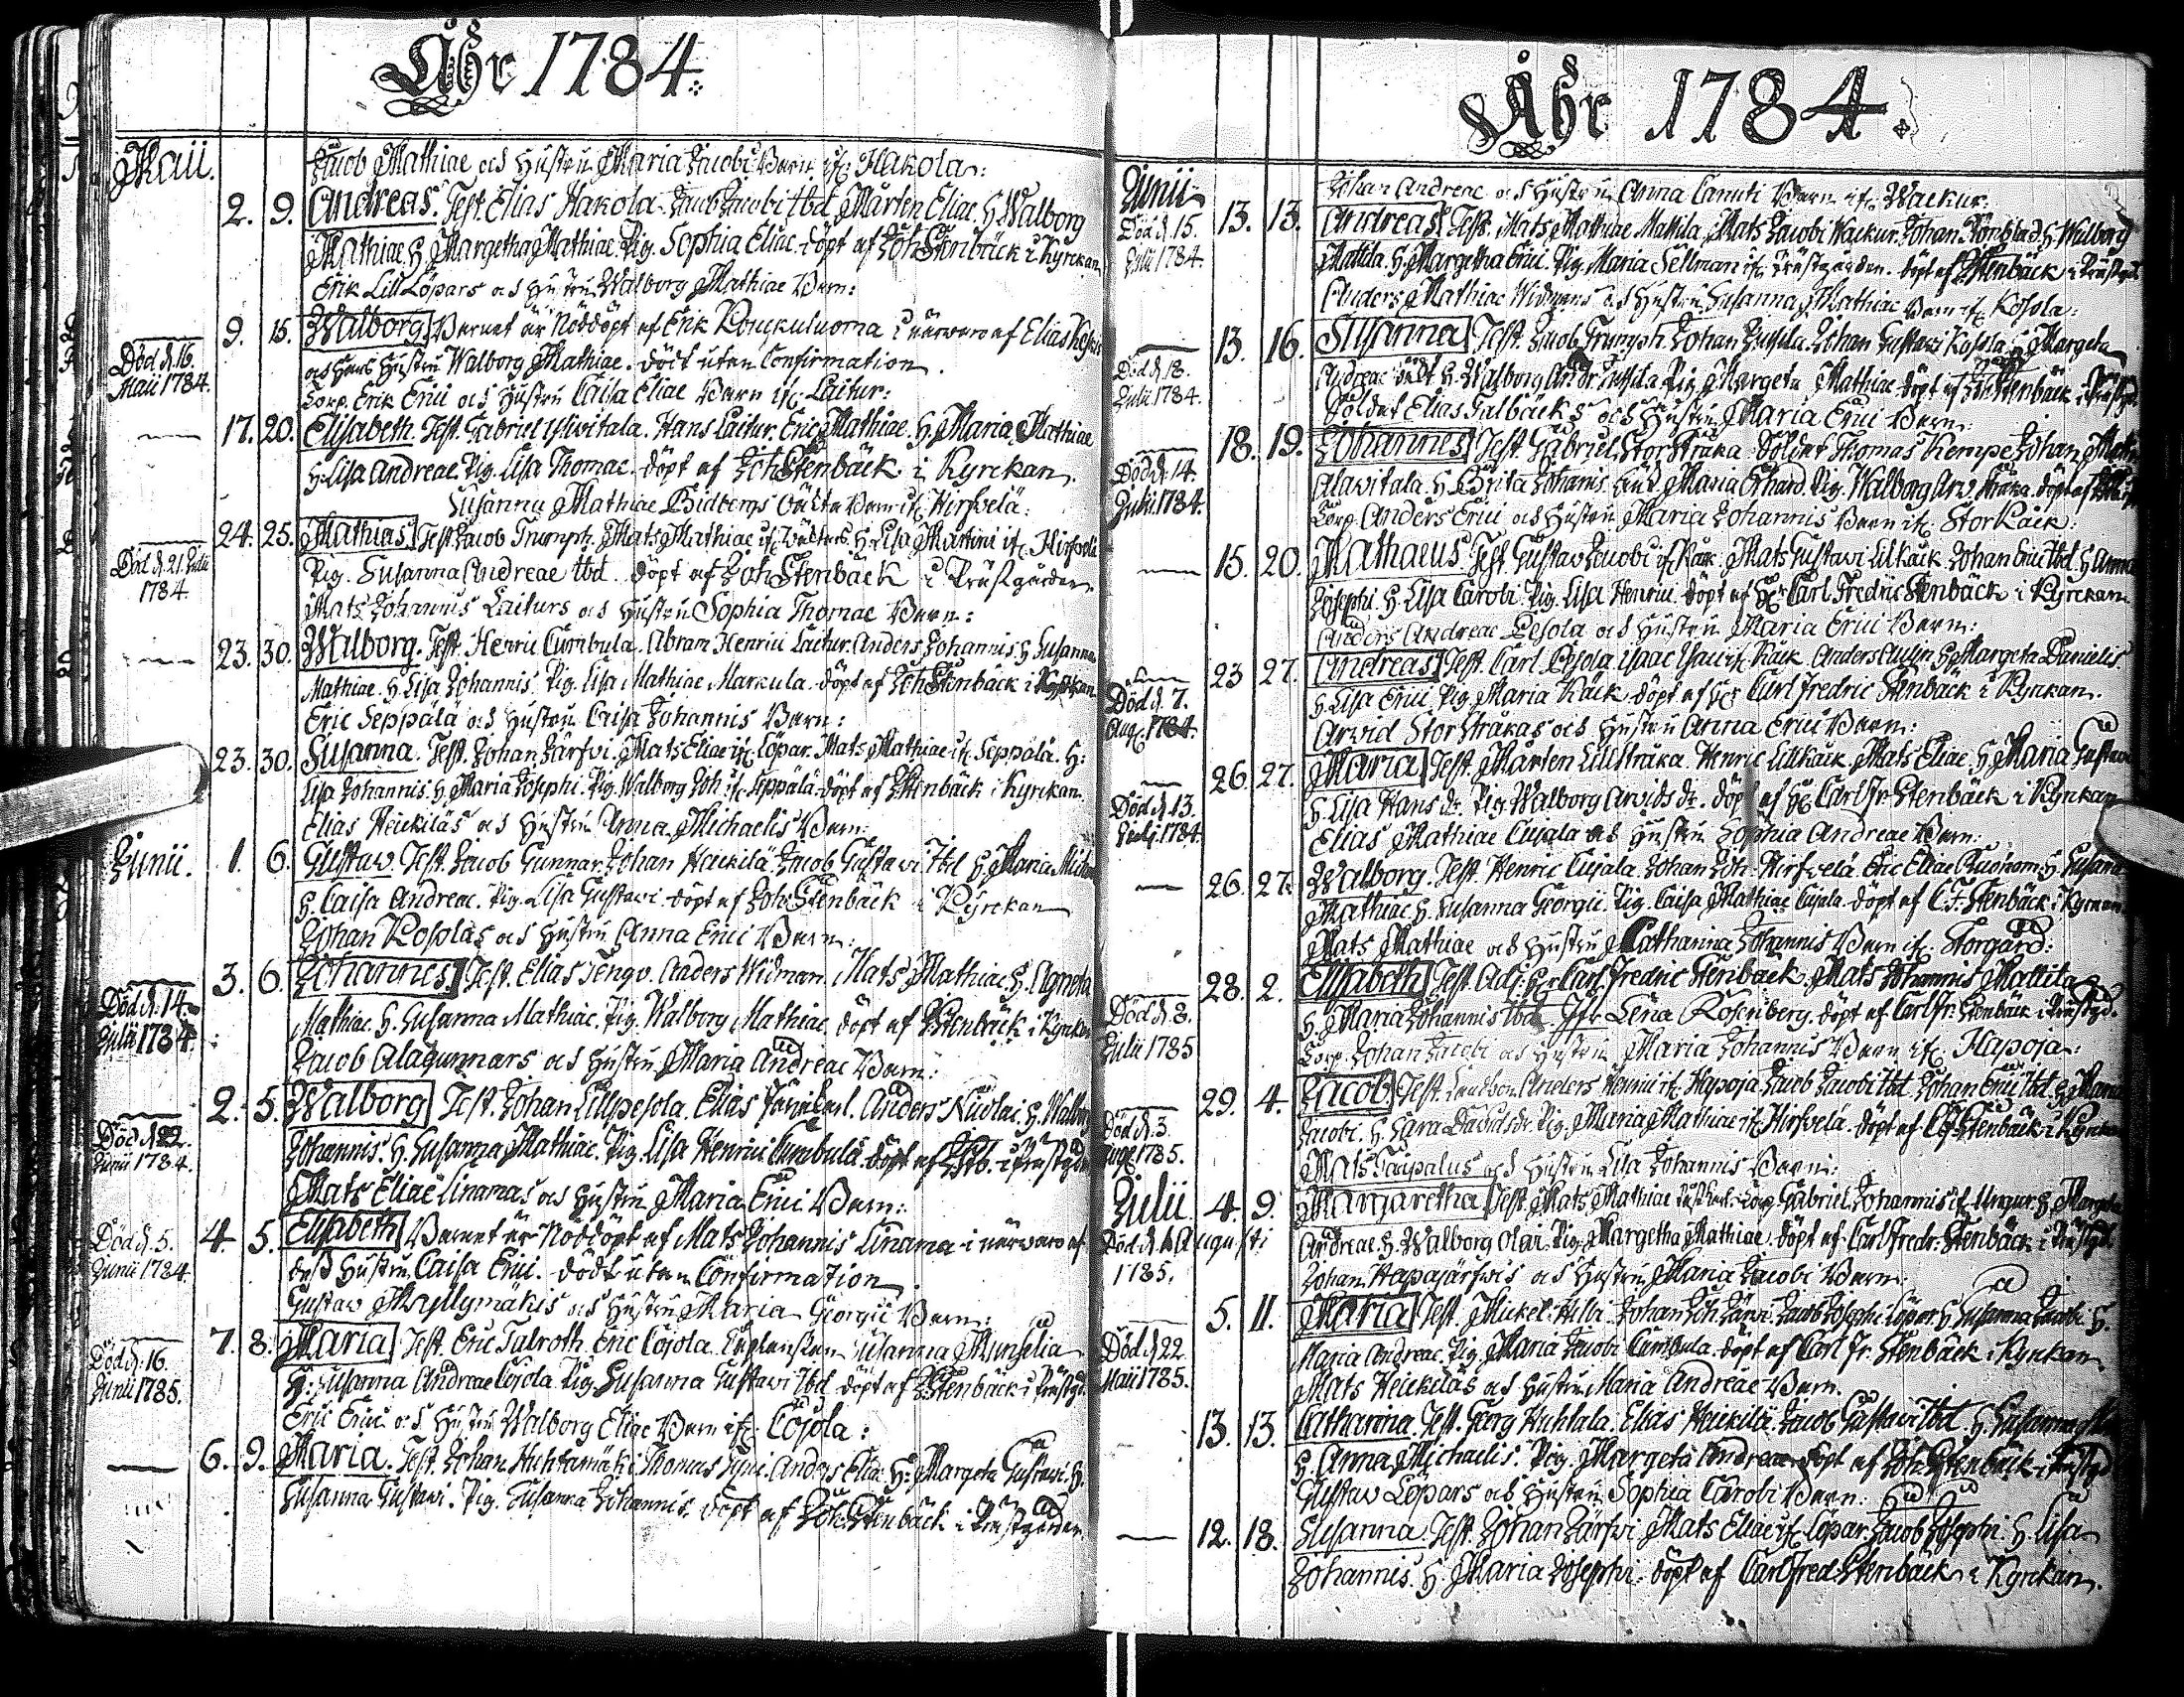 Åhr 1784.
Maii.
Jacob Mathiae och Hustru Maria Jacobi Barn if. Hakola:
2. 9. Andreas. Test. Elias Hakola. Jacob Jacobi ibd. Mårten Eliae. H. Walborg
Mathiae. H. Margetha Mathiae. Pig. Sophia Eliae. döpt af Joh. Stenbäck i Kyrckan
Erik Lill Löpars och Hustru Walborg Mathiae Barn:
9. 15. Walborg. Barnet är Nöddöpt af Erik i närvaro af Elias
Död d. 16. Maii 1784.
och hans Hustru Walborg Mathiae. dödt utan Confirmation.
Corp. Erik Erici och Hustru Caisa Eliae Barn if. Laitur:
17. 20. Elisabeth. Test. Gabriel Ylivitala. Hans Laitur. Eric Mathiae. H. Maria Mathiae
H. Lisa Andreae. Pig. Lisa Thomae. döpt af Joh. Stenbäck i Kyrckan.
Susanna Mathiae Bidbergs oäkta Barn if. Hirfvelä:
24. 25. Mathias. Test. Jacob Trumph. Mats Mathiae if. H. Lisa Martini if. Hirfvelä
Död d. 21. Julii 1784.
Pig. Susanna Andreae ibd. döpt af Joh. Stenbäck i Prästgården
Mats Johannis Laiturs och Hustru Sophia Thomae Barn:
23. 30. Walborg. Test. Henric Cumbula. Abram Henrici Laitur. Anders Johannis. H. Susanna
Mathiae. H. Lisa Johannis. Pig. Lisa Mathiae Markula. döpt af Joh. Stenbäck i Kyrckan.
Eric Seppälä och Hustru Caisa Johannis Barn:
23. 30. Susanna. Test. Johan Järfvi. Mats Eliae if. Löpar. Mats Mathiae if. Seppälä. H:
Lisa Johannis. H. Maria Josephi. Pig. Walborg Joh. if. Seppälä. döpt af J. Stenbäck i Kyrckan.
Elias Heickiläs och Hustru Anna Michaelis Barn:
Junii. 1. 6. Gustaw. Test. Jacob Gunnar. Johan Heickilä. Jacob Gustavi ibd. H. Maria
H. Caisa Andreae. Pig. Lisa Gustavi. döpt af Joh. Stenbäck i Kyrckan
Johan Kosolas och Hustru Anna Erici Barn:
3. 6. Johannes. Test. Elias Tengv. Anders Widman. Mats Mathiae. H. Agneta
Död d. 14. Julii 1784.
Mathiae. H. Susanna Mathiae. Pig. Walborg Mathiae. döpt af J. Stenbäck i Kyrckan
Jacob Alagunnars och Hustru Maria Andreae Barn:
2. 5. Walborg. Test. Johan Lillpesola. Elias Anders Nicolai. H. Walborg
Död d. 22. Junii 1784.
Johannis. H. Susanna Mathiae. Pig. Lisa Henrici Cumbula. döpt af J. Stb. i Prästgdn
Mats Eliae Linamas och Hustru Maria Erici Barn:
4. 5. Elisabeth. Barnet är Nöddöpt af Mats Johannis Linama i närvaro af
Död d. 5. Junii 1784.
dess Hustru Caisa Erici. dödt utan Confirmation
Gustav Myllymäkis och Hustru Maria Georgii Barn:
7. 8. Maria. Test. Eric Talroth. Eric Cojola. Susanna Munselia
Död d. 16. Junii 1785.
H. Susanna Andreae Cojola. Pig. Susanna Gustavi ibd. döpt af J. Stenbäck i Prästgd.
Eric Erici och Hustru Walborg Eliae Barn if. Cojola:
6. 9. Maria. Test. Johan Huhtamäki. Thomas Anders Eliae. H: Margeta Gustavi. H.
Susanna Gustavi. Pig. Susanna Johannis. döpt af Joh. Stenbäck i Prästgården.
Åhr 1784.
Junii
Johan Andreae och Hustru Anna Canuti Barn if. Wackur:
13. 13. Andreas. Test. Mats Mathiae Mattila. Mats Jacobi Wackur. Johan H. Walborg
Död d. 15. Julii 1784.
Mattila. H. Margetha Erici. Pig. Maria Sellman if. Prästgården. döpt af J. Stenbäck i Prästgd.
Anders Mathiae Widmans och Hustru Susanna Mathiae Barn if. Kosola:
13. 16. Susanna. Test. Jacob Trumph. Johan Jussila. Johan Gustavi Kosola. H. Margeta
Död d. 18. Julii 1784.
Andreae H. Walborg Andr. Jussila. Pig. Margeta Mathiae. döpt af Joh. Stenbäck i Prästgd.
Soldat Elias Talbäcks och Hustru Maria Erici Barn:
18. 19. Johannes. Test. Gabriel Storstråka. Soldat Thomas Kempe. Johan
Död d. 14. Julii 1784.
Alavitala. H. Brita Johannis. Maria Erhard. Pig. Walborg Arv. Stråka. döpt af
Corp. Anders Erici och Hustru Maria Johannis Barn if. StorKäck:
15. 20. Mathaeus. Test. Gustav Jacobi if. Käck. Mats Gustavi Lillkäck. Johan Erici ibd. H. Anna
Josephi. H. Lisa Caroli. Pig. Lisa Henrici. döpt af Hr Carl Fredric Stenbäck i Kyrckan
Anders Andreae Pesola och Hustru Maria Erici Barn:
23 27. Andreas. Test. Carl Pesola. Isaac Isaci if. Käck. Anders H. Margeta Danielis
Död d. 7. Aug. 1784.
H. Lisa Erici. Pig. Maria Käck. döpt af Hr Carl Fredric Stenbäck i Kyrckan.
Arvid Storstråkas och Hustru Anna Erici Barn:
26. 27. Maria. Test. Mårten Lillstråka. Henric Lillkäck. Mats Eliae. H. Maria Gustavi
Död d. 13. 1784.
H. Lisa Hans dr. Pig. Walborg Arvids dr. döpt af Hr Carl Fr. Stenbäck i Kyrckan
Elias Mathiae Cujala och Hustru Sophia Andreae Barn:
26. 27. Walborg. Test. Henric Cujala. Johan Joh. Hirfvelä. Eric Eliae H. Susanna
Mathiae. H. Susanna Georgii. Pig. Caisa Mathiae Cujala. döpt af C. F. Stenbäck i Kyrckan.
Mats Mathiae och Hustru Catharina Johannis Barn if. Storgård:
28. 2. Elisabeth. Test. Adj. Hr Carl Fredric Stenbäck. Mats Johannis Mattila
Död d. 8. Julii 1785
H. Maria Johannis ibd. Jfr Lena Rosenberg. döpt af Carl Fr: Stenbäck i Prästgd.
Corp. Johan Jacobi och Hustru Maria Johannis Barn if. Hapoja:
29. 4. Jacob. Test. Anders Henrici if. Hapoja. Jacob Jacobi ibd. Johan Erici ibd. H. Maria
Död d. 3. 1785.
Jacobi. H. Sara Davidsdr. Pig. Maria Mathiae if. Hirfvelä. döpt af C. F. Stenbäck i Kyrckan
Mats Taipalus och Hustru Lisa Johannis Barn:
Julii 4. 9. Margaretha. Test. Mats Mathiae Corp. Gabriel Johannis if. H. Margeta
Död d. Augusti 1785.
Andreae. H. Walborg Olai. Pig. Margetha Mathiae. döpt af Carl Fredr. Stenbäck i Prästgd.
Johan Hapajärfvis och Hustru Maria Jacobi Barn:
5. 11. Maria. Test. Mickel Johan Joh. Järvi. Jacob Josephi Löpar. H. Susanna Jacobi. H.
Död d. 22. Maii 1785.
Maria Andreae. Pig. Maria Jacobi Cumbula. döpt af Carl Fr. Stenbäck i Kyrckan.
Mats Heickiläs och Hustru Maria Andreae Barn.
13. 13. Catharina. Test. Georg Huhtala. Elias Heickilä. Jacob Gustavi ibd. H. Susanna
H. Anna Michaelis. Pig. Margeta Andreae. döpt af Joh. Stenbäck i Prästgd
Gustav Löpars och Hustru Sophia Caroli Barn:
12. 18. Susanna. Test. Johan Järfvi. Mats Eliae if. Löpar. Jacob Josephi. H. Lisa
Johannis. H. Maria Josephi. döpt af Carl Fred Stenbäck i Kyrckan.